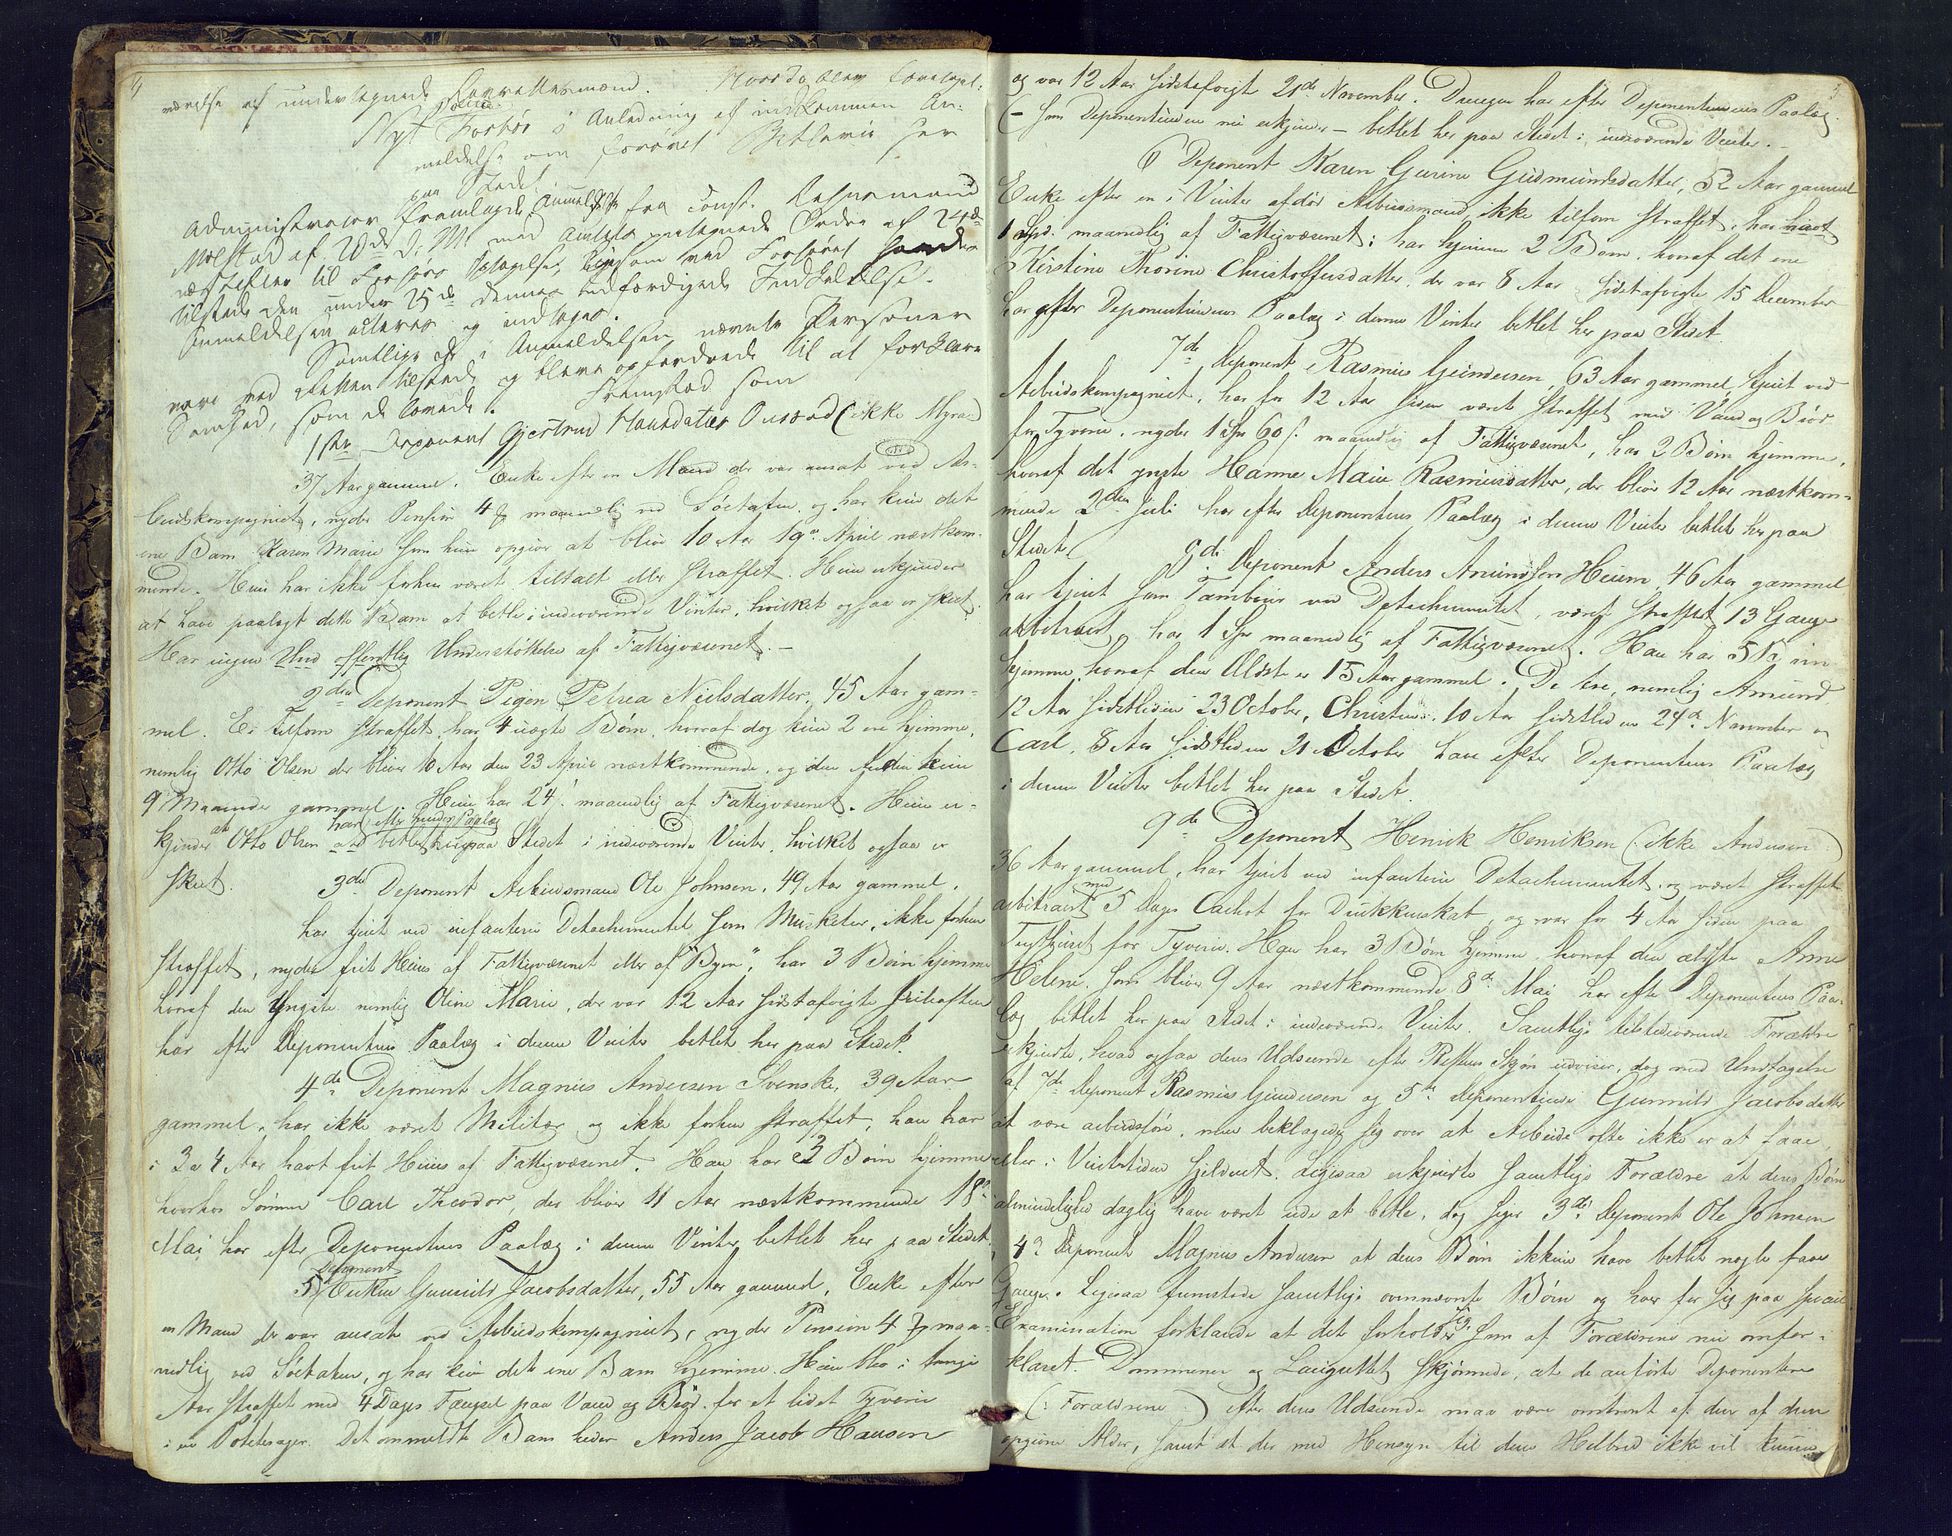 4
nærelse af undertegnede Laurettesmænd. Hvorda blev foretaget:
Nyt Forhør i Anledning af indkommen An-
meldelse om forøvet Betlerie her
paa Stedet.
Administrator fremlagde Anmeldelse fra const. Lehnsmand
Molstad af 20de d. M. med Amtets paategnede Ordre af 24de
næstefter til Forhørs Optagelse, ligesom ved Forhøret havde
tilstede den under 25de dennes udfærdigede Indkaldelse.
Anmeldelsen acteres og indtages.
Samtlige de i Anmeldelsen nævnte Personer
vare ved Retten tilstede og bleve opfordrede til at forklare
Sandhed, som de lovede. Fremstod som
1ste Deponent Gjertrud (ikke Myra)
37 Aar gammel. Enke efter en Mand der var ansat ved Ar-
beidskompagniet, nyder Pension 4 maanedlig ved Søetaten og har kun det
ene Barn Karen Marie som hun opgiver at blive 10 Aar 19de April næstkom-
mende. Hun har ikke forhen været tiltalt eller straffet. Hun erkjender
at have paalagt dette Barn at betle i indeværende Vinter, hvilket ogsaa er skeet
Har ingen offentlig Understøttelse af Fattigvæsenet.
2den Deponent Pigen Petrea Nielsdatter, 45 Aar gam-
mel. Er tilforn straffet, har 4 uægte Børn, hvoraf dog kun 2 ere hjemme,
nemlig Otto Olsen der bliver 10 Aar den 23 April næstkommende, og den Anden kun
9 Maaneder gammel. Hun har 24 maanedlig af Fattigvæsenet. Hun er-
kjender at Otto Olsen har efter hendes Paalæg betlet her paa Stedet i indeværende Vinter, hvilket ogsaa er
skeet. 3die Deponent Arbeidsmand Ole Johnsen, 49 Aar gammel,
har tjent ved infanterie Detachementet som Musketer, ikke forhen
straffet, nyder frit Huus af Fattigvæsenet eller af "Byen", har 3 Børn hjemme
hvoraf den Yngste nemlig Oline Marie, der var 12 Aar sidstafvigte Juleaften
har efter Deponentens Paalæg i denne Vinter betlet her paa Stedet.
4de Deponent Magnus Andersen Svenske, 39 Aar
gammel, har ikke været Militær og ikke forhen straffet, han har
i 3 a 4 Aar havt frit Huus af Fattigvæsenet. Han har 3 Børn hjemme
hvorhos Sønnen Carl Theodor, der bliver 11 Aar næstkommende 18de
Mai, har efter Deponentens Paalæg i denne Vinter betlet her paa Stedet.
5 Deponent Enken Gunnild Jacobsdatter, 55 Aar gammel, Enke efter
en Mand der var ansat ved Arbeidskompagniet, nyder Pension 4 maa-
nedlig ved Søetaten, og har kun det ene Barn hjemme. Hun blev i forrige
Aar straffet med 4 Dages Fængsel paa Vand og Brød for et lidet Tyverie
i en Potetesager. Det ommeldte Barn heder Anders Jacob Hansen
5
og var 12 Aar sidstafvigte 21de November. Drengen har efter Deponentindens Paalæg
(- som Deponentinden nu erkjender - betlet her paa Stedet i indeværende Vinter. -
6 Deponent Karen Gurine Gudmundsdatter, 52 Aar gammel
Enke efter en i Vinter afdød Arbeidsmand, ikke tilforn straffet, har havt
1 Spd. maanedlig af Fattigvæsenet; har hjemme 2 Børn, hvoraf det ene
Kirstine Thorine Christoffersdatter, der var 8 Aar sidstafvigte 15 December
har efter Deponentindens Paalæg i denne Vinter betlet her paa Stedet.
7de Deponent Rasmus Gundersen, 63 Aar gammel, tjent ved
Arbeidskompagniet, har for 12 Aar siden været straffet med Vand og Brød
for Tyverie, nyder 1 Spd 60 s. maanedlig af Fattigvæsenet, har 2 Børn hjemme,
hvoraf det yngste Hanne Marie Rasmusdatter, der bliver 12 Aar næstkom-
mende 2den Juli har efter Deponentens Paalæg i denne Vinter betlet her paa
Stedet.
8de Deponent Anders Amundsen Heum, 46 Aar gammel
har tjent som Tambour ved Detachementet, været straffet 13 Gange
arbitrært, har 1 Spd maanedlig af Fattigvæsenet. Han har 5 Børn
hjemme, hvoraf den Ældste er 15 Aar gammel. De tre, nemlig Amund
12 Aar sidstleden 23 October, Christian, 10 Aar sidstleden 24de November og
Carl, 8 Aar sidstleden 21 October have efter Deponentens Paalæg
i denne Vinter betlet her paa Stedet.
9de Deponent Henrik Henriksen (ikke Andersen)
36 Aar gammel, har tjent ved infanterie Detachementet og været straffet
arbitrært med 5 Dages Cachot for Drukkenskab, og var for 4 Aar siden paa
Tugthuset for Tyverie. Han har 3 Børn hjemme, hvoraf den ældste Anne
Helene, som bliver 9 Aar næstkommende 8de Mai har efter Deponentens Paa-
læg betlet her paa Stedet i indeværende Vinter. Samtlige tilstedeværende Forældre
erkjendte, hvad ogsaa deres Udseende efter Rettens Skjøn udviser, dog med Undtagelse
af 7de Deponent Rasmus Gundersen og 5te Deponentinde Gunnild Jacobsdatter
at være arbeidsføre, men beklagede sig over at Arbeide ofte ikke er at faae
eller i Vintertiden sjeldent. Ligesaa erkjendte samtlige Forældre at deres Børn
almindeligviis daglig have været ude at betle, dog siger 3die Deponent Ole Johnsen
4de Deponent Magnus Andersen at deres Børn ikkun have betlet nogle faae
Gange. Ligesaa fremstode samtlige ovennævnte Børn og hver for sig paa speciel
Examination forklarede at det forholder sig som af Forældrene nu omfor-
klaret. Dommeren og Laugrettet skjønnede, at de anførte Deponenter
(: Forældrene :) efter deres Udseende maa være omtrent af den af dem
opgivne Alder, samt at der med Hensyn til deres Helbred ikke vil kunne